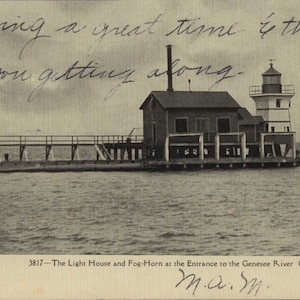 ing a great time & th
ou getting along.
3817—The Light House and Fog-Horn at the Entrance to the Genesee River
M.A.M.